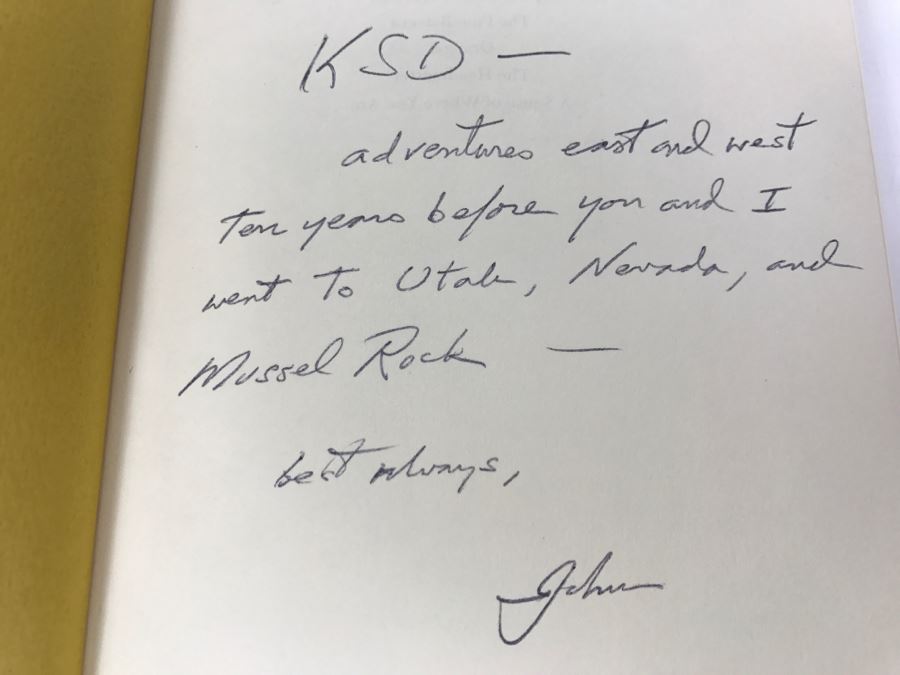 KSD —
adventures east and west
ten years before you and I
went to Utah, Nevada, and
Mussel Rock —
best always,
John